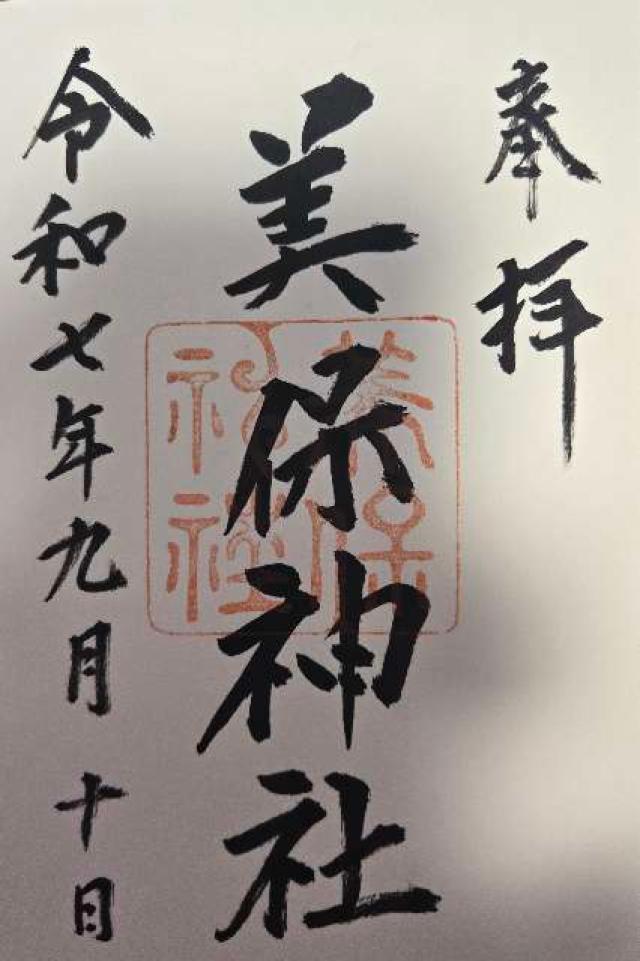 奉拝
美保神社
美保
神社
令和七年九月十日